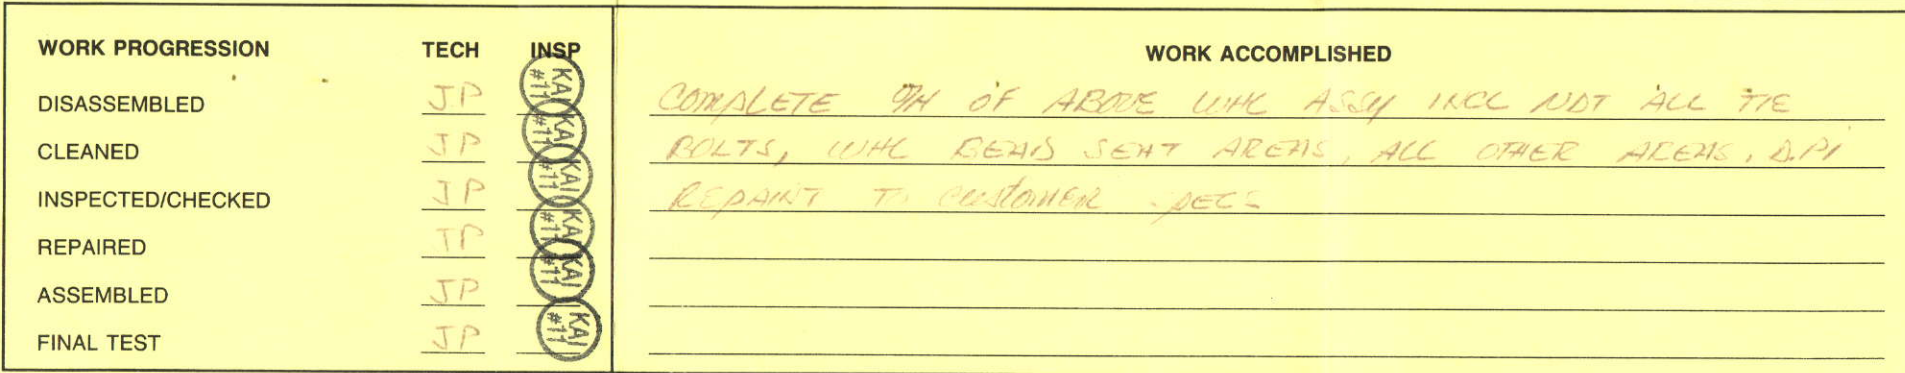 WORK PROGRESSION TECH INSP
DISASSEMBLED JP KAI #11
CLEANED JP KAI #11
INSPECTED/CHECKED JP KAI #11
REPAIRED JP KAI #11
ASSEMBLED JP KAI #11
FINAL TEST JP KAI #11
WORK ACCOMPLISHED
COMPLETE O/H OF ABOVE WHL ASSY INCL NDT ALL TIE
BOLTS, WHL BEAD SEAT AREAS, ALL OTHER AREAS. D.P.I
REPAINT TO CUSTOMER SPECS